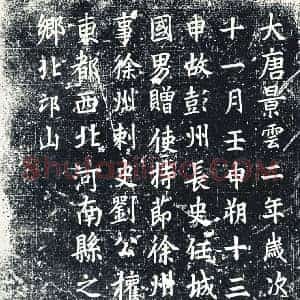 大唐景雲二年歲次
十一月壬申朔十三
申故彭州長史任城
國男贈使持節徐州
事徐州刺史劉公權
東都西北河南縣之
鄉北邙山